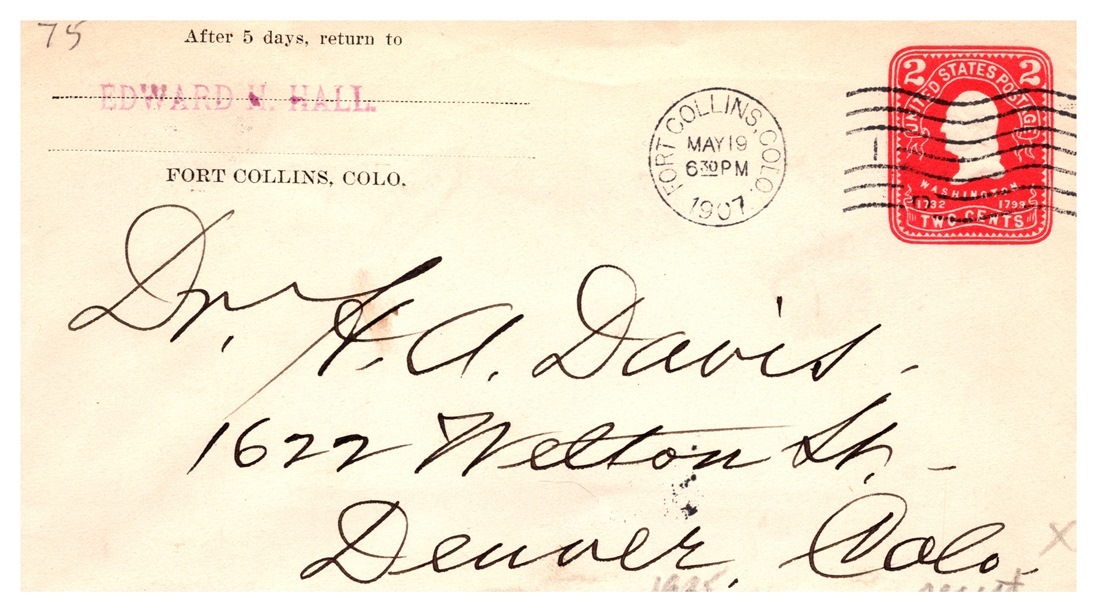 75
After 5 days, return to
EDWARD H. HALL.
FORT COLLINS, COLO.
FORT COLLINS, COLO.
MAY 19
6 30 PM
1907
1
2 2
UNITED STATES POSTAGE
WASHINGTON
1732 1799
TWO CENTS
Dr. H. A. Davis.
1622 Welton St. -
Denver, Colo.
X